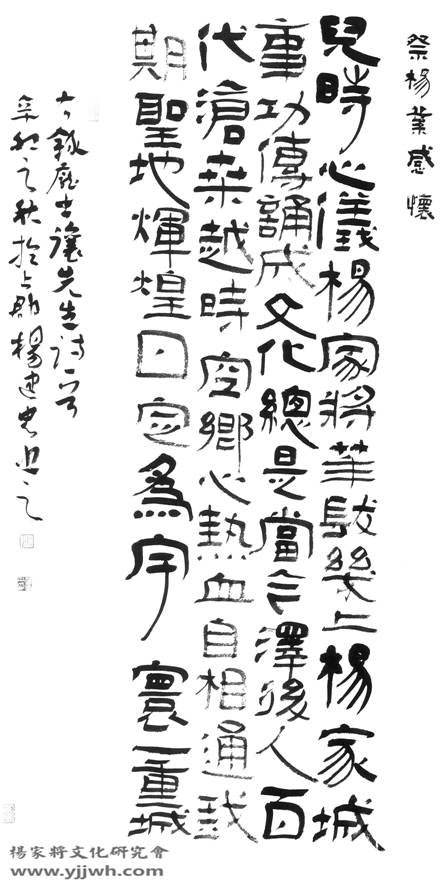 祭楊業感懷
兒時心儀楊家將華髮幾上楊家城
事功傳誦成文化總是當今澤後人百
代滄桑越時空鄉心熱血自相通我
期聖地輝煌日定為宇寰一重城
右錄龐士讓先生詩一首
辛卯之秋於上郡楊建忠之
楊家將文化研究會
www.yjjwh.com